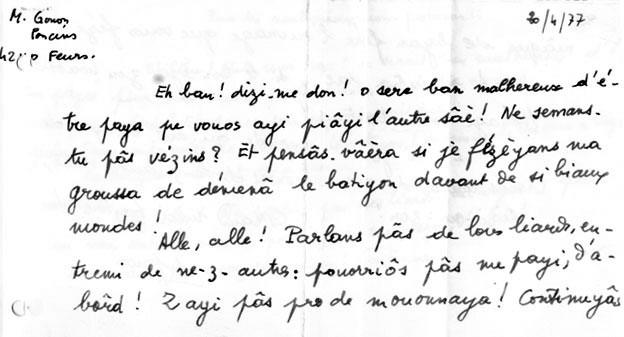 M. Gonon 20/4/77
Poncins
42 Feurs.
Eh ban! dizi-me don! o sera ban malhereux d'é-
tre paya pe vouos ayi piâyi l'autre sâè! Ne semans-
tu pâs vézins? Et pensâs-vâèra si je fézèyans ma
groussa de démenâ le batiyon davant de si biaux
mondes!
Alle, alle! Parlans pâs de lous liards, en-
tremi de ne-z-autres: pouorriôs pâs me payi, d'a-
bôrd! Z'ayi pâs pro de mouonnaya! Continuyâs